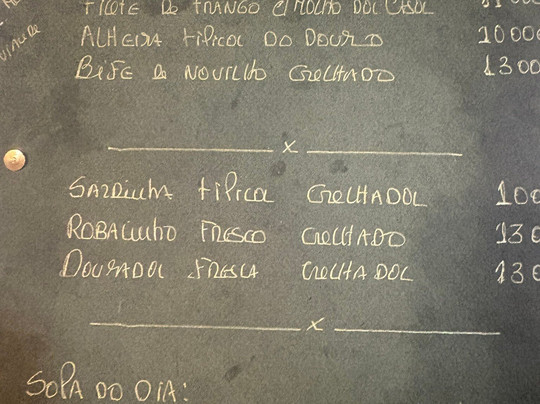 FILETE DE FRANGO C/MOLHO DA CASA
ALHEIRA TÍPICA DO DOURO 1000
BIFE DE NOVILHO GRELHADO 1300
x
SARDINHA TÍPICA GRELHADA 100
ROBALINHO FRESCO GRELHADO 130
DOURADA FRESCA GRELHADA 130
x
SOPA DO DIA: